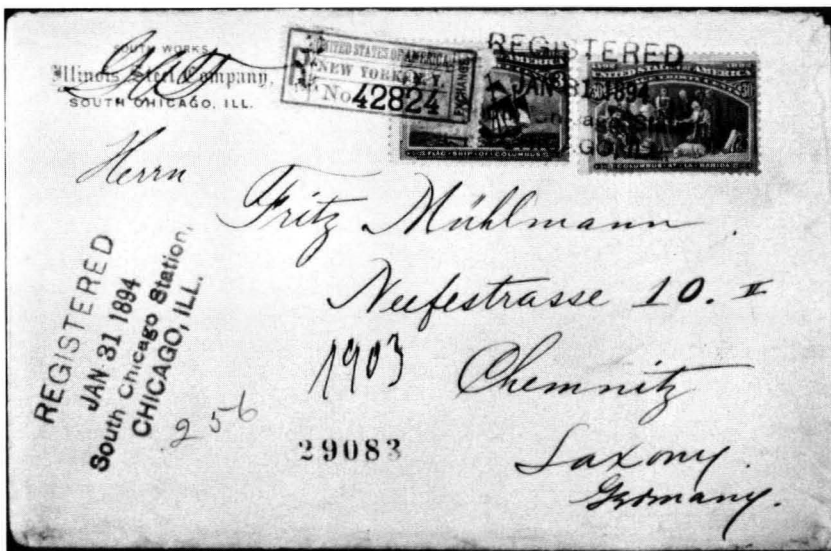 SOUTH WORKS
Illinois Steel Company,
SOUTH CHICAGO, ILL.
UNITED STATES OF AMERICA
NEW YORK N.Y.
No 42824
EXCHANGE
REGISTERED
JAN 31 1894
AMERICA
FLAG SHIP OF COLUMBUS
UNITED STATES OF AMERICA
COLUMBUS AT LA RABIDA
Herrn
Fritz Mühlmann.
Neefestrasse 10. II
Chemnitz
Saxony.
Germany.
REGISTERED
JAN 31 1894
South Chicago Station,
CHICAGO, ILL.
1903
256
29083